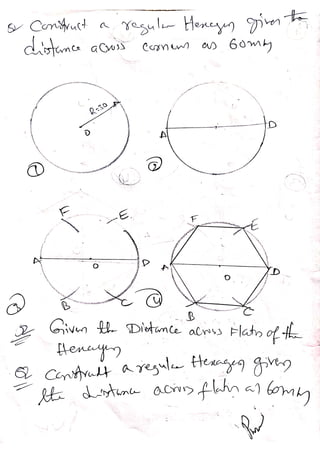 Construct a regular Hexagon given the
distance across corners as 60mm
R=30
O
①
A
D
②
F
E
A
O
D
B
C
③
F
E
A
O
D
B
C
④
Given the Distance across Flats of the
Hexagon
Q2 Construct a regular Hexagon given
the distance across flats as 60mm